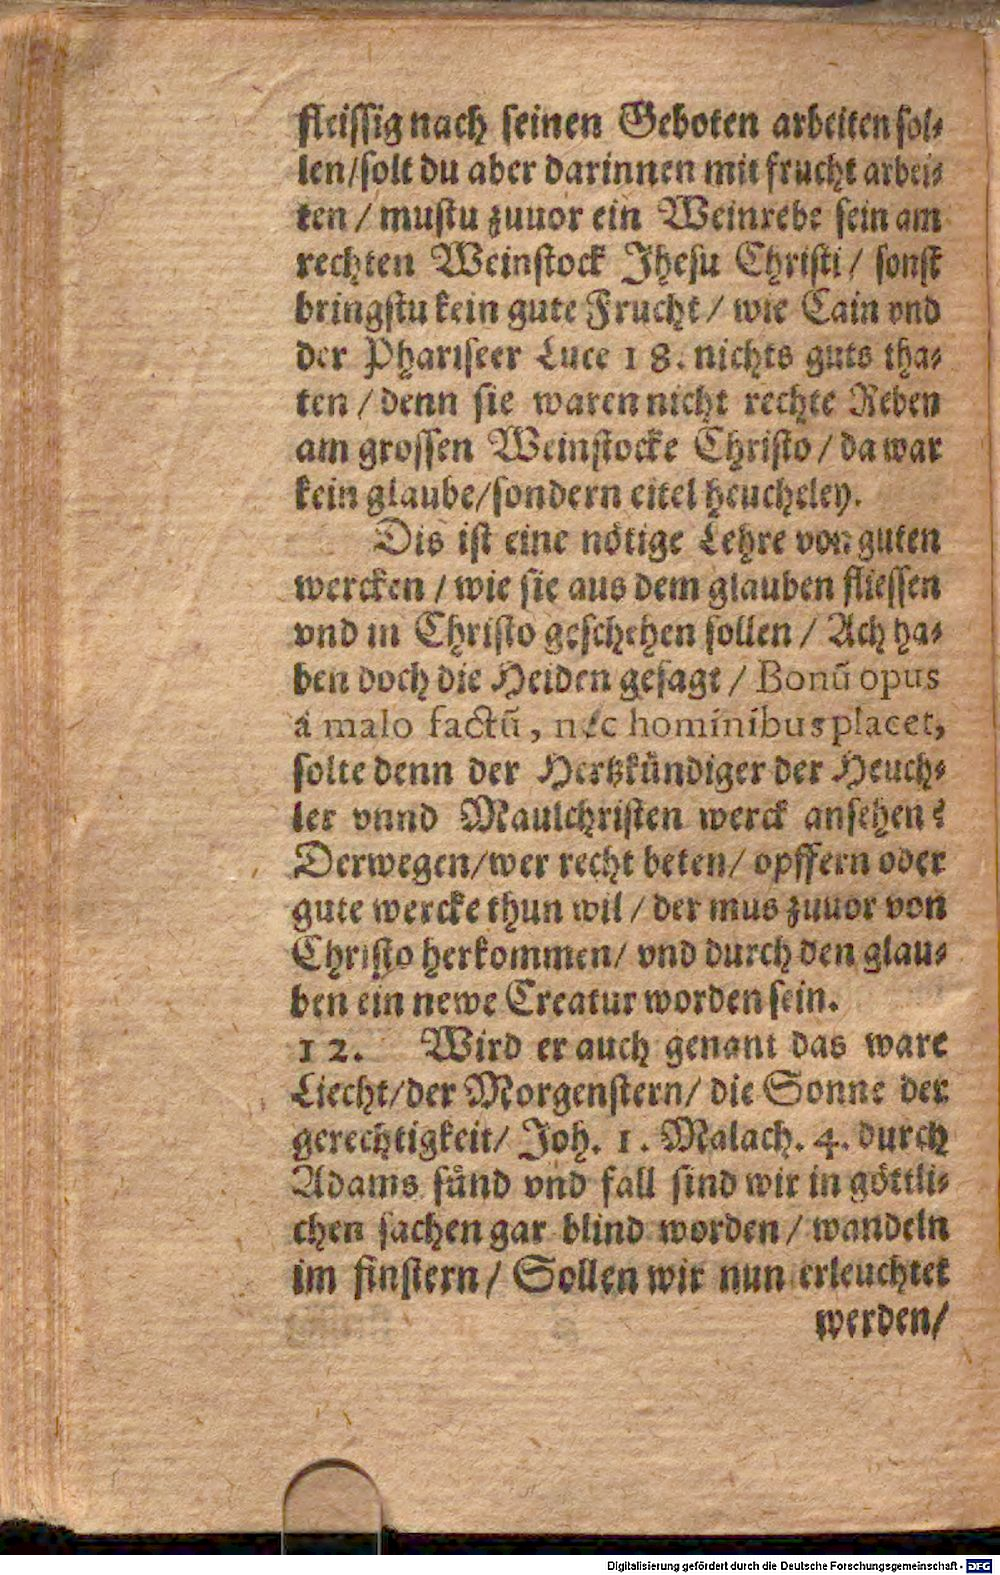 fleissig nach seinen Geboten arbeiten sol⸗
len/solt du aber darinnen mit frucht arbei⸗
ten / mustu zuuor ein Weinrebe sein am
rechten Weinstock Jhesu Christi / sonst
bringstu kein gute Frucht / wie Cain vnd
der Phariseer Luce 18. nichts guts tha⸗
ten / denn sie waren nicht rechte Reben
am grossen Weinstocke Christo / da war
kein glaube/sondern eitel heucheley.
Dis ist eine nötige Lehre von guten
wercken / wie sie aus dem glauben fliessen
vnd in Christo geschehen sollen / Ach ha⸗
ben doch die Heiden gesagt / Bonũ opus
á malo factũ, nec hominibus placet,
solte denn der Hertzkündiger der Heuch⸗
ler vnnd Maulchristen werck ansehen?
Derwegen/wer recht beten/ opffern oder
gute wercke thun wil / der mus zuuor von
Christo herkommen/ vnd durch den glau⸗
ben ein newe Creatur worden sein.
12. Wird er auch genant das ware
Liecht/der Morgenstern/ die Sonne der
gerechtigkeit/ Joh. 1. Malach. 4. durch
Adams sünd vnd fall sind wir in göttli⸗
chen sachen gar blind worden / wandeln
im finstern / Sollen wir nun erleuchtet
werden/
Digitalisierung gefördert durch die Deutsche Forschungsgemeinschaft - DFG